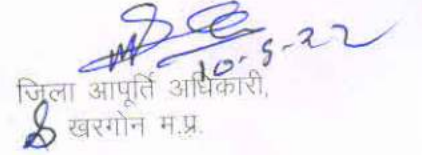 10-5-22
जिला आपूर्ति अधिकारी,
खरगोन म.प्र.